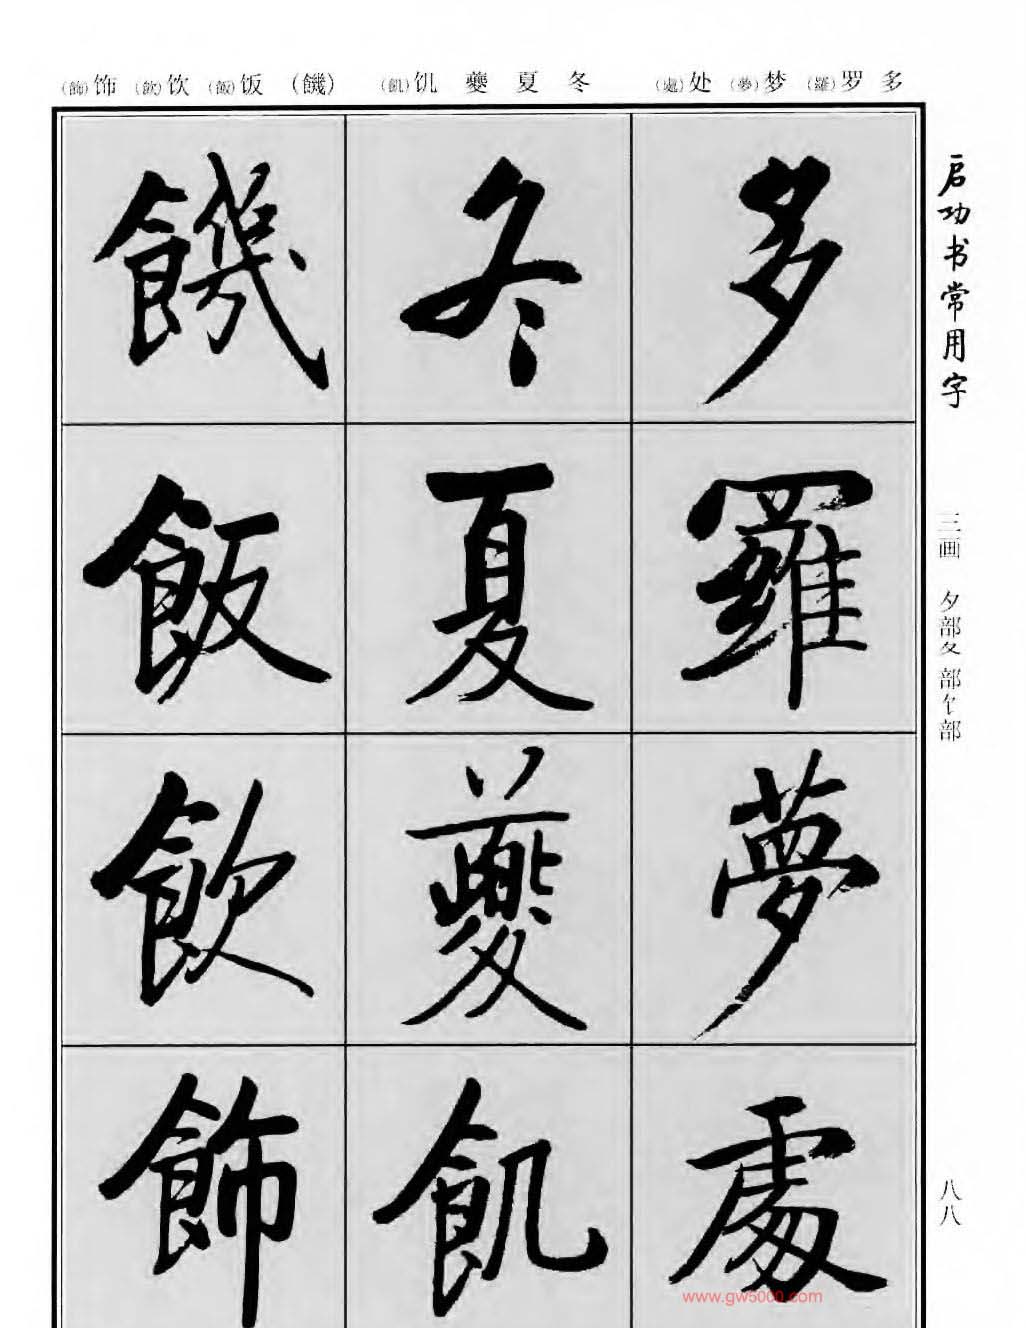 (飾)饰 (飲)饮 (飯)饭 (饑) (飢)饥 夔 夏 冬 (處)处 (夢)梦 (羅)罗 多
多
羅
夢
處
冬
夏
夔
飢
饑
飯
飲
飾
启功书常用字
三画 夕部夂部饣部
八八
www.gw5000.com